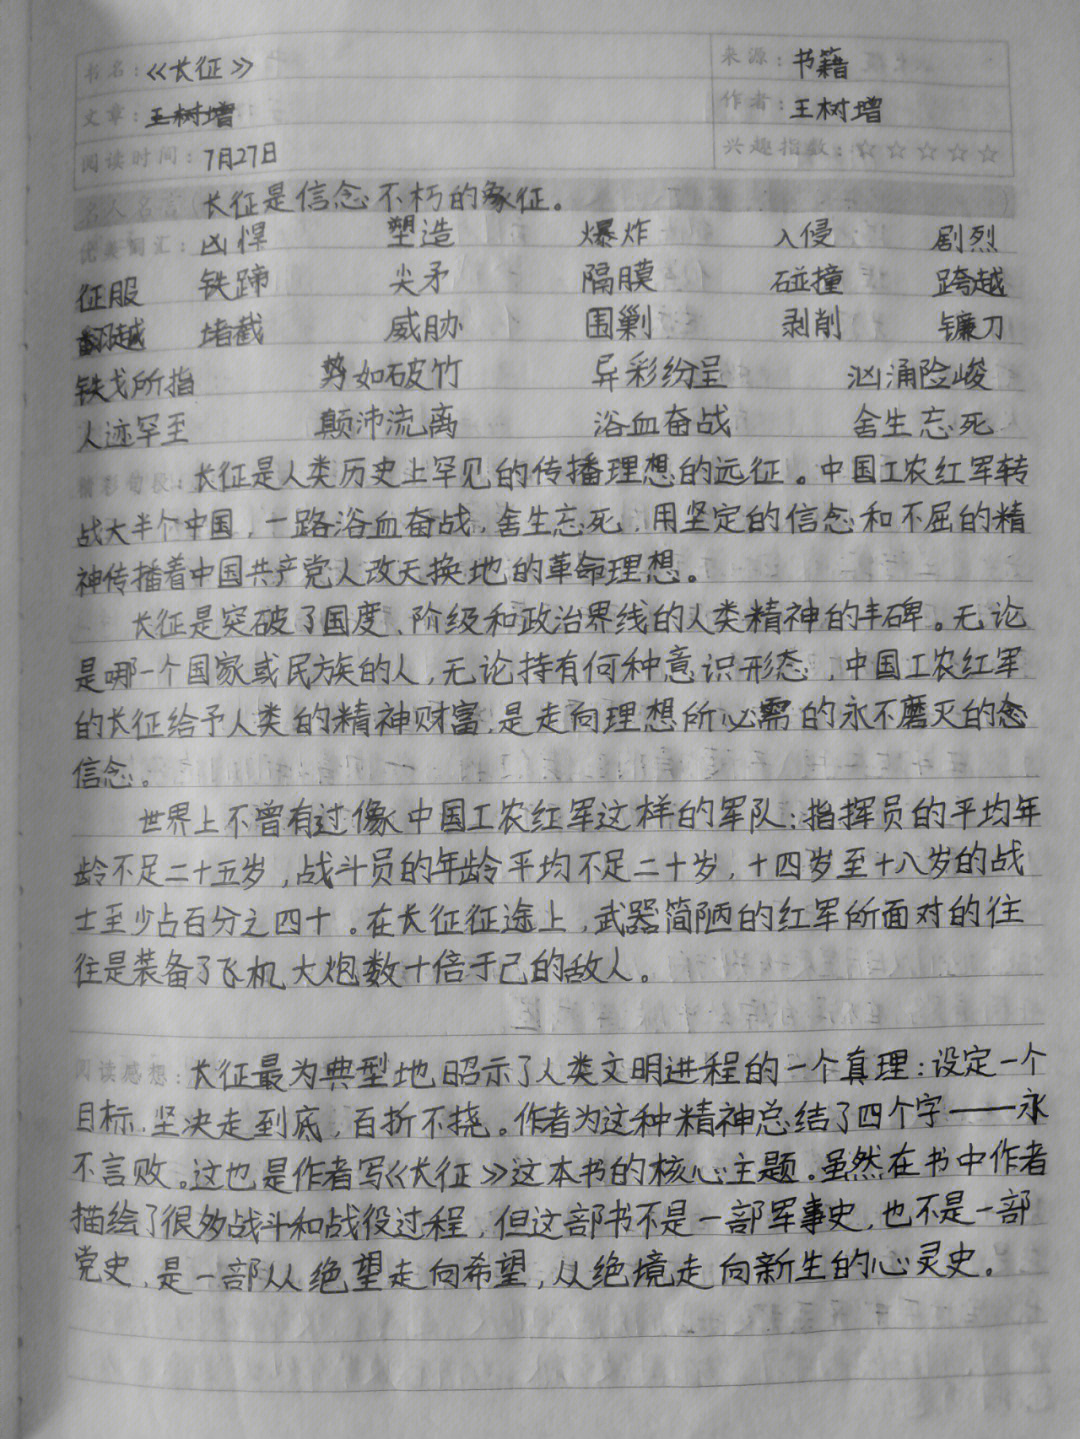 书名：《长征》 来源：书籍
文章：王树增 作者：王树增
阅读时间：7月27日 兴趣指数：☆☆☆☆☆
名人名言（长征是信念不朽的象征。）
优美词汇：凶悍 塑造 爆炸 入侵 剧烈
征服 铁蹄 尖矛 隔膜 碰撞 跨越
翻越 堵截 威胁 围剿 剥削 镰刀
铁戈所指 势如破竹 异彩纷呈 汹涌险峻
人迹罕至 颠沛流离 浴血奋战 舍生忘死
精彩句段：长征是人类历史上罕见的传播理想的远征。中国工农红军转
战大半个中国，一路浴血奋战，舍生忘死，用坚定的信念和不屈的精
神传播着中国共产党人改天换地的革命理想。
长征是突破了国度、阶级和政治界线的人类精神的丰碑。无论
是哪一个国家或民族的人，无论持有何种意识形态，中国工农红军
的长征给予人类的精神财富，是走向理想所必需的永不磨灭的念
信念。
世界上不曾有过像中国工农红军这样的军队：指挥员的平均年
龄不足二十五岁，战斗员的年龄平均不足二十岁，十四岁至十八岁的战
士至少占百分之四十。在长征征途上，武器简陋的红军所面对的往
往是装备了飞机大炮数十倍于己的敌人。
阅读感想：长征最为典型地昭示了人类文明进程的一个真理：设定一个
目标，坚决走到底，百折不挠。作者为这种精神总结了四个字——永
不言败。这也是作者写《长征》这本书的核心主题。虽然在书中作者
描绘了很多战斗和战役过程，但这部书不是一部军事史，也不是一部
党史，是一部从绝望走向希望，从绝境走向新生的心灵史。